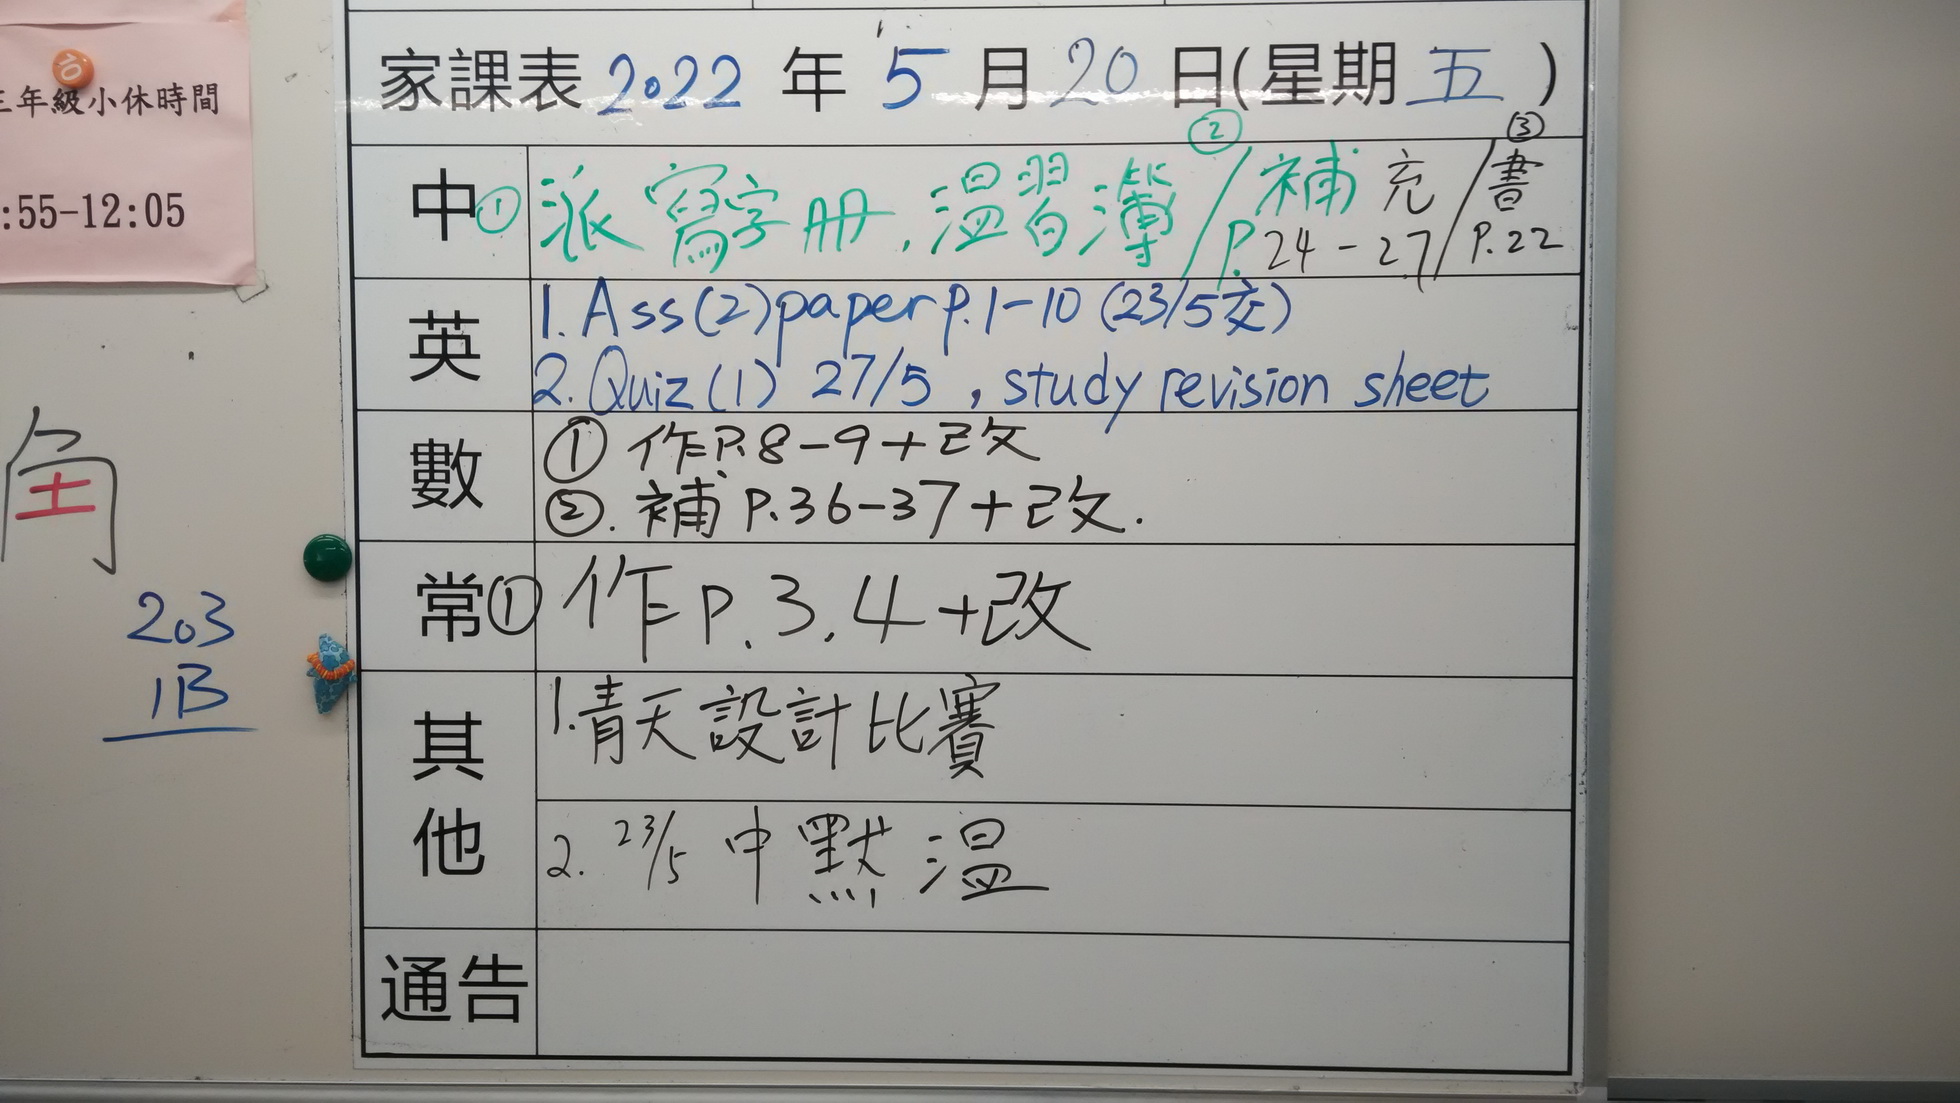 三年級小休時間
:55-12:05
角
203
1B
家課表 2022 年 5 月 20 日(星期 五 )
中 ① 派寫字冊, 溫習簿 / ② 補充 P.24-27 / ③ 書 P.22
英 1. Ass(2) paper P.1-10 (23/5交)
2. Quiz(1) 27/5 , study revision sheet
數 ① 作P.8-9+改
②. 補 P.36-37+改.
常 ① 作P.3.4+改
其他 1.青天設計比賽
2. 23/5 中默溫
通告